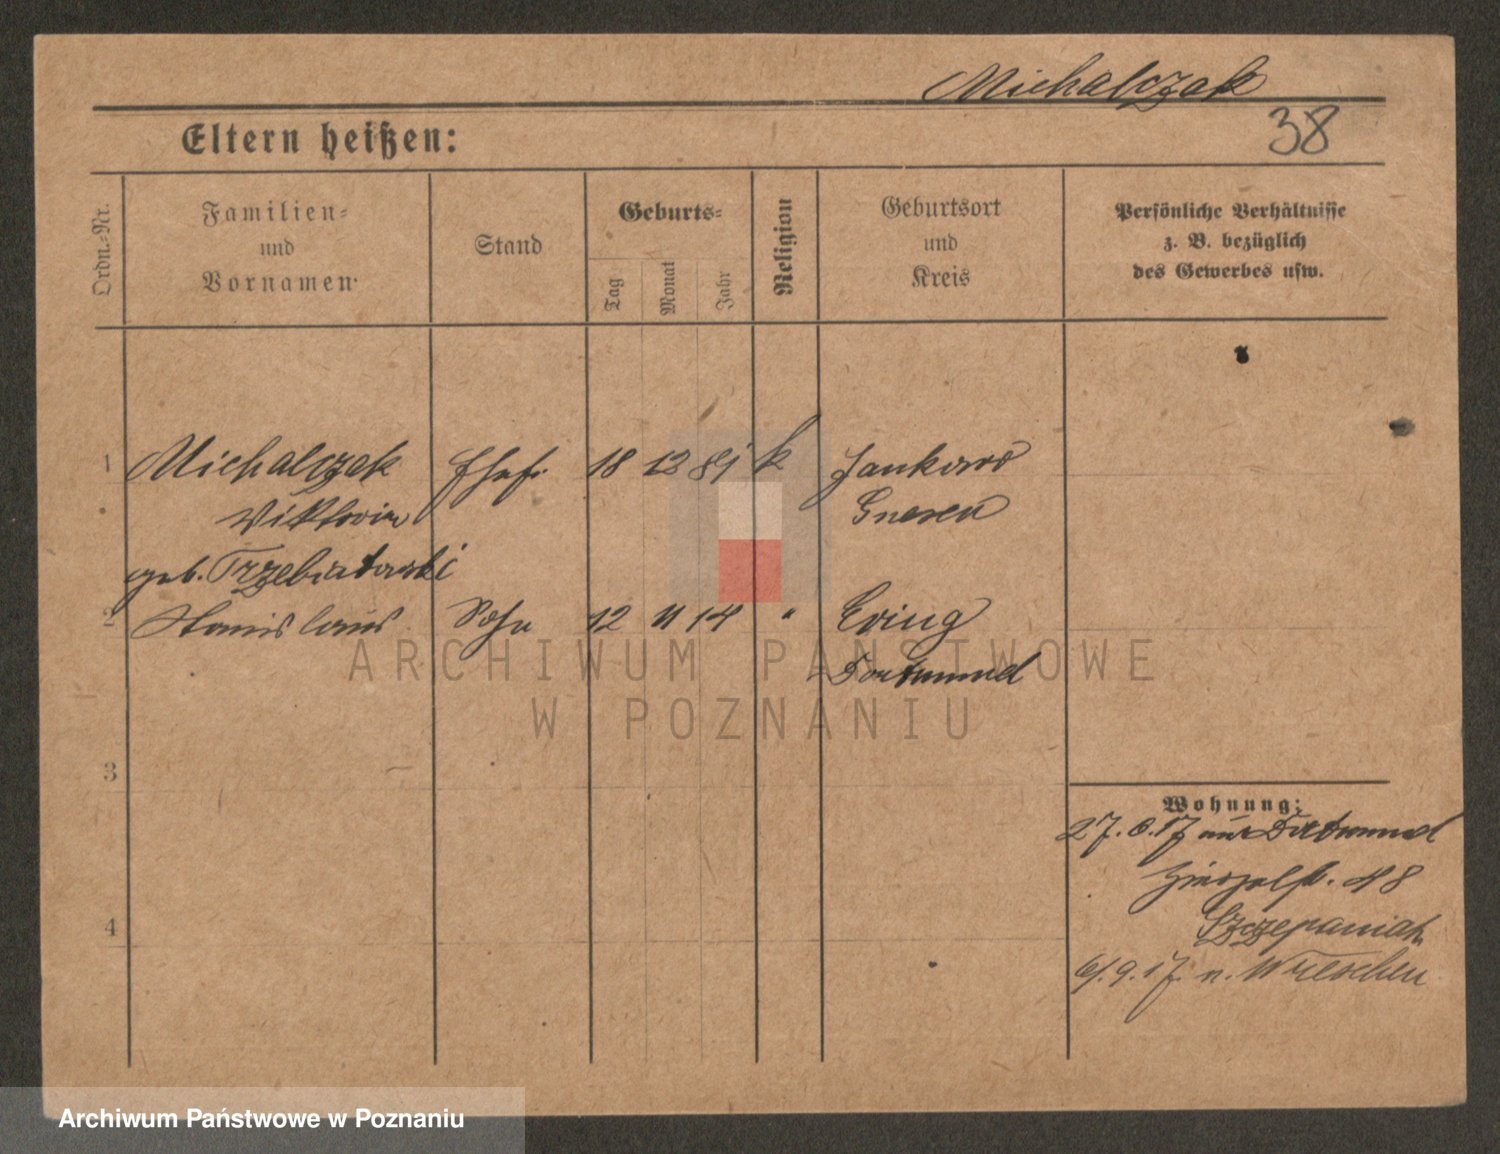 Michalczak
38
Eltern heißen:
Ordn.-Nr.
Familien-
und
Vornamen
Stand
Geburts-
Tag
Monat
Jahr
Religion
Geburtsort
und
Kreis
Persönliche Verhältnisse
z. B. bezüglich
des Gewerbes usw.
1 Michalczak Ehefr. 18 12 81 k Jankowo
Viktoria Gnesen
geb. Trzebiatowski
2 Stanislaus Sohn 12 11 14 " Eving
Dortmund
3
4
Wohnung:
27. 6. 17 aus Dortmund
48
Szczepaniak
6/. 9. 17. n. Wreschen
ARCHIWUM PAŃSTWOWE
W POZNANIU
Archiwum Państwowe w Poznaniu